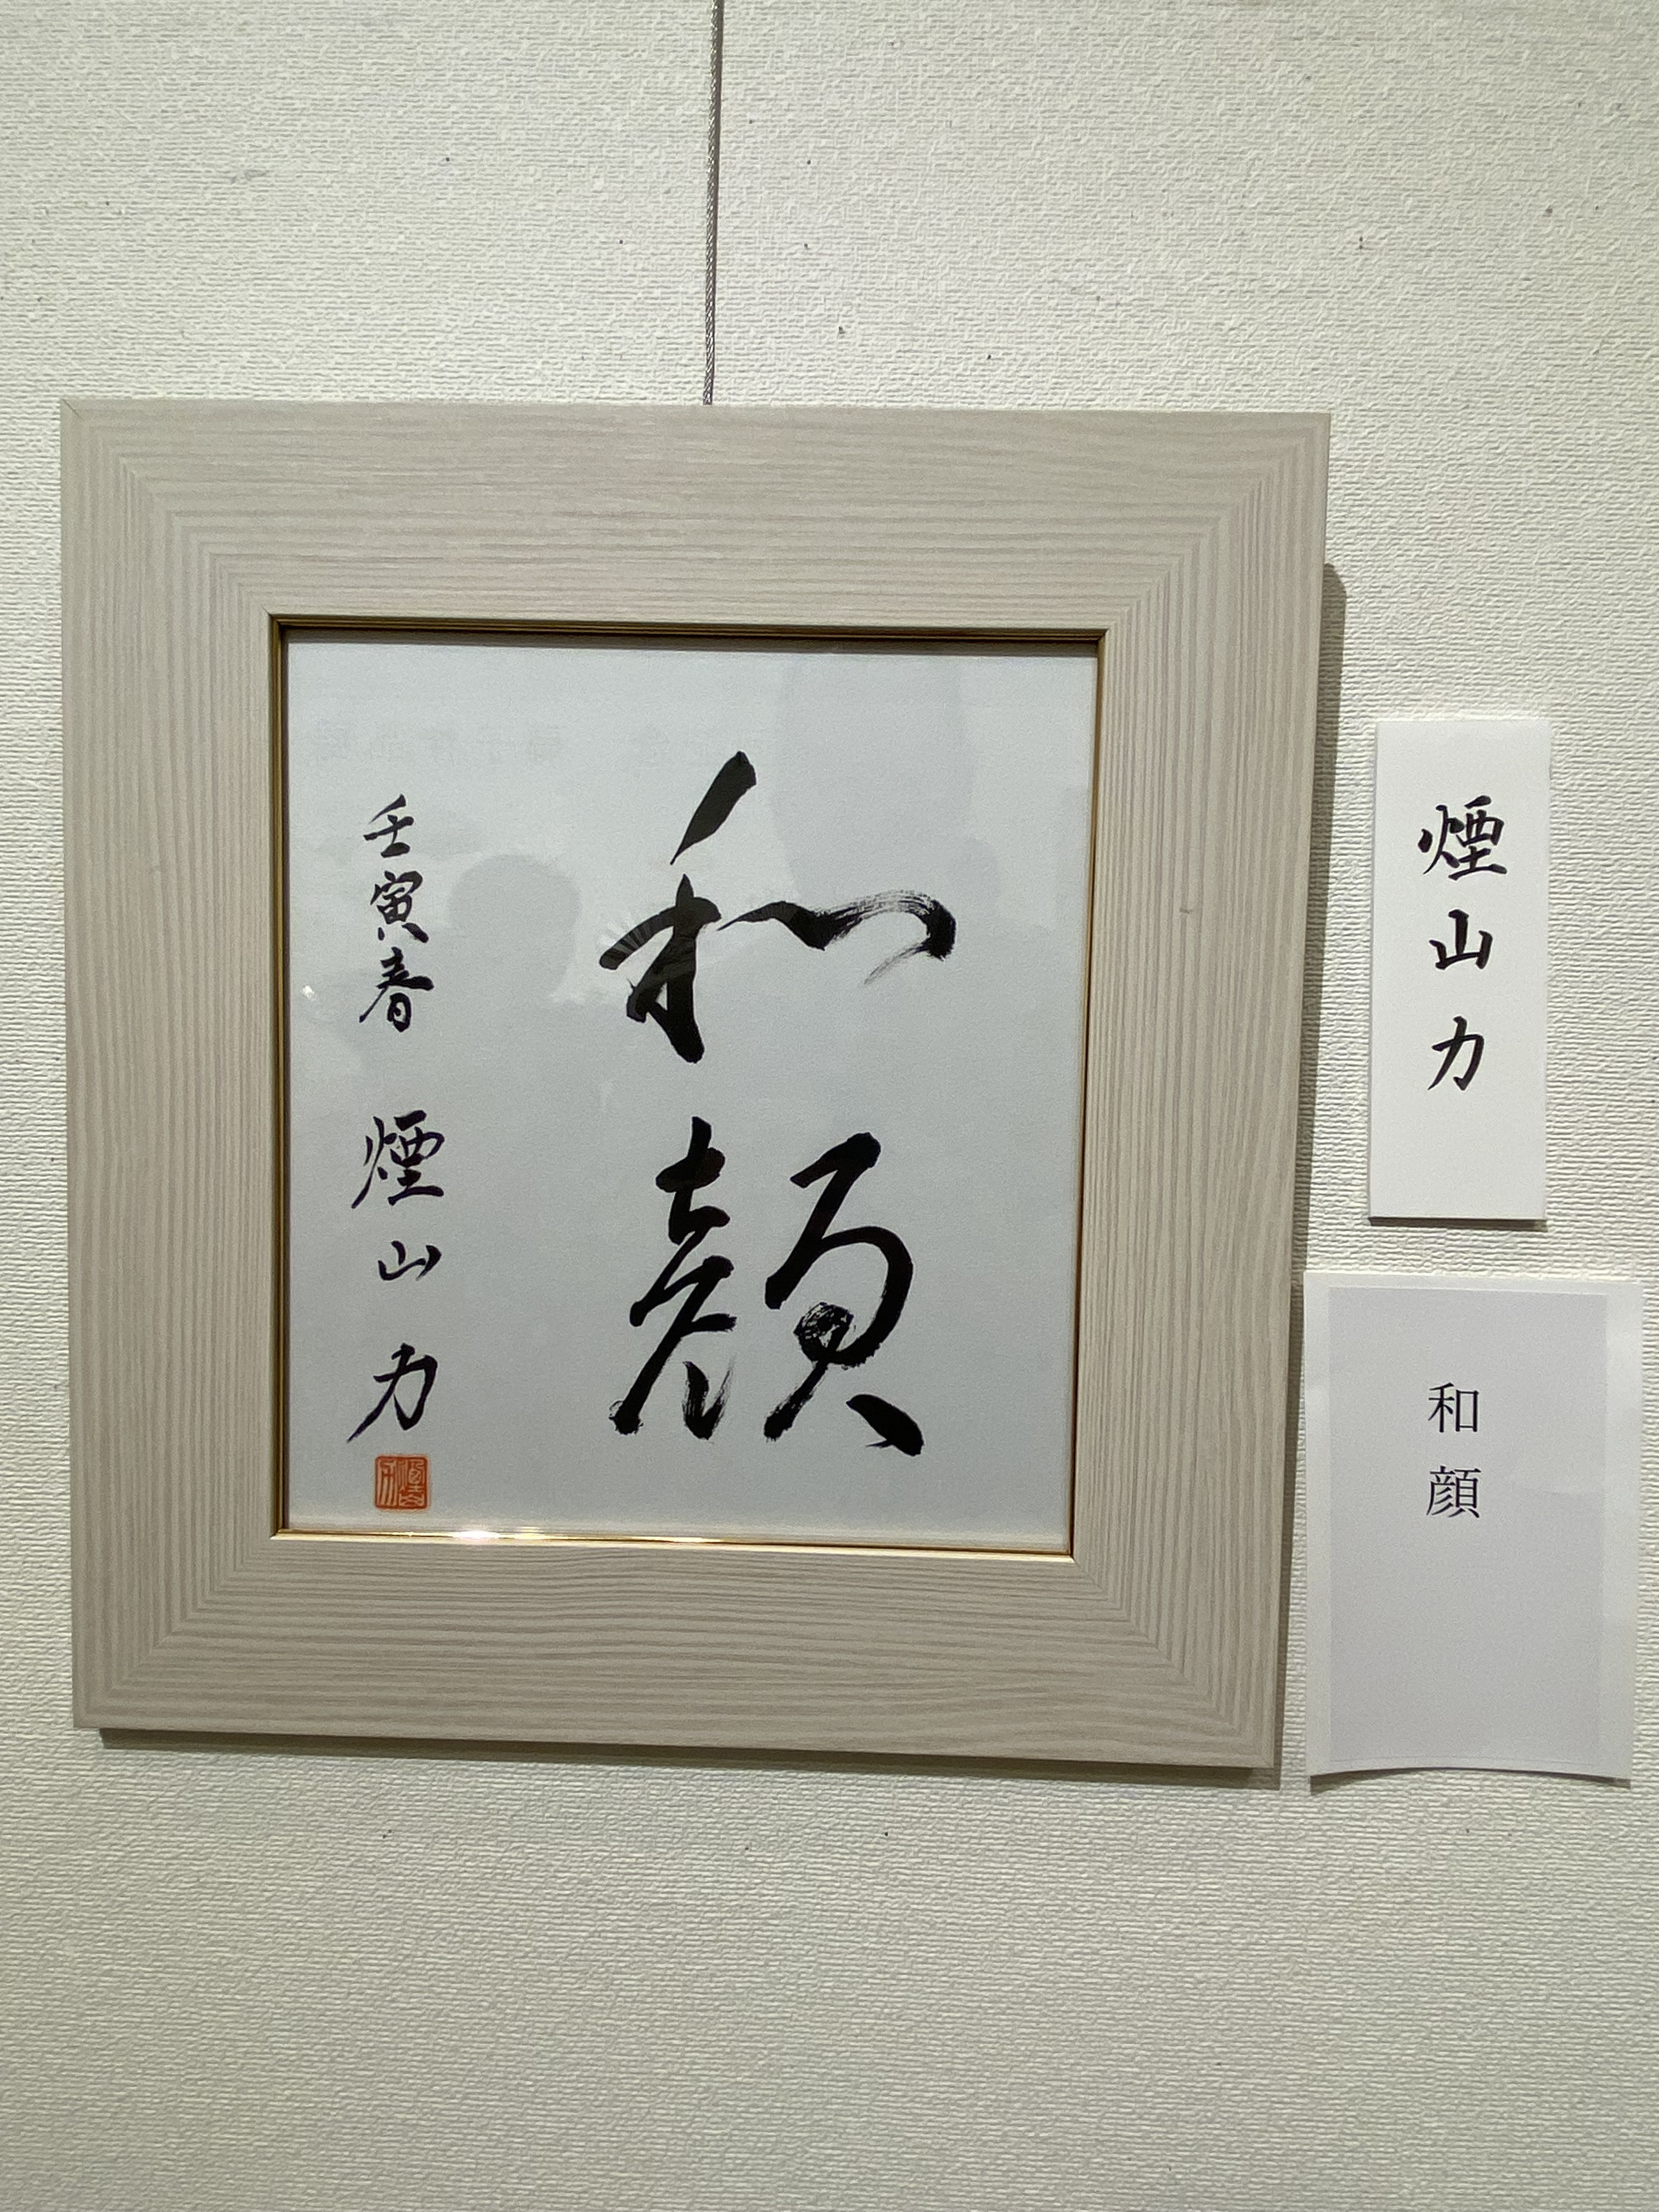 和顔
壬寅春 煙山力
煙山力
和顔